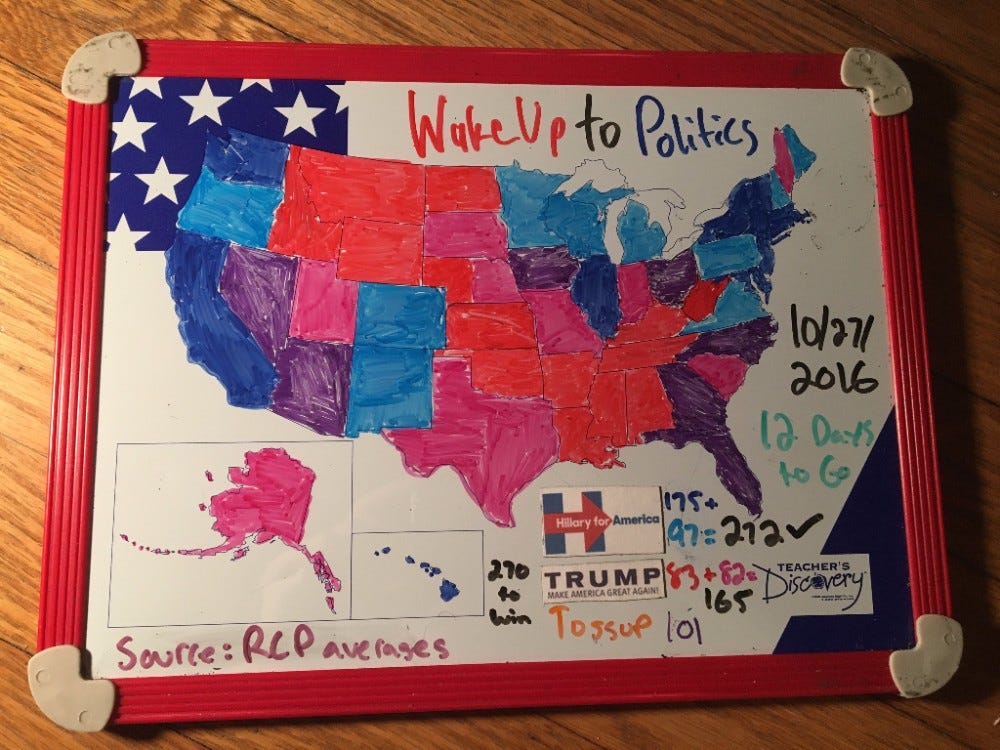 Wake Up to Politics
10/27/
2016
12 Days
to Go
Hillary for America
175+
97= 272 ✓
270
to
win
TRUMP
MAKE AMERICA GREAT AGAIN!
83+82=
165
Tossup 101
TEACHER'S
Discovery
Source: RCP averages